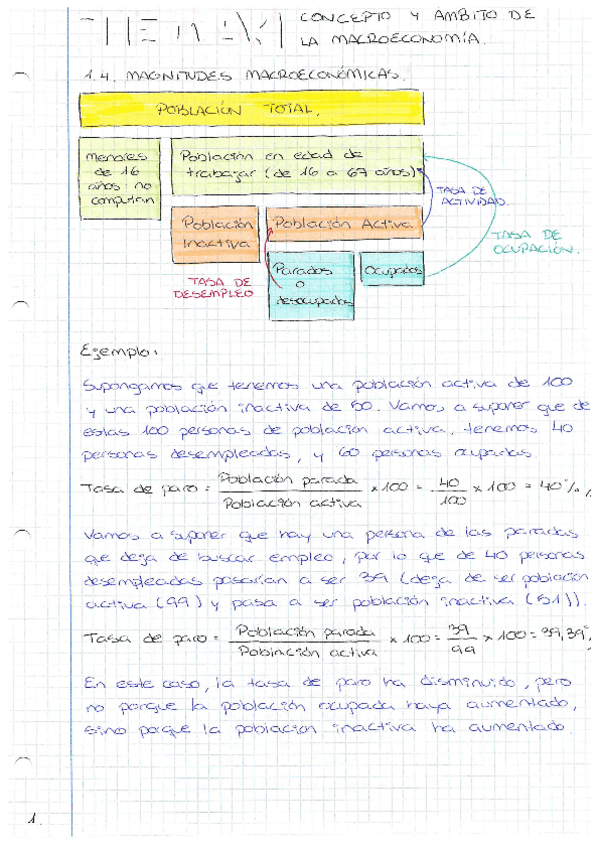 CONCEPTO Y AMBITO DE
LA MACROECONOMÍA.
1.4. MAGNITUDES MACROECONÓMICAS.
POBLACIÓN TOTAL.
menores
de 16
años no
computan
Población en edad de
trabajar (de 16 a 67 años)
TASA DE
ACTIVIDAD.
Población
Inactiva
Población Activa
TASA DE
OCUPACIÓN.
TASA DE
DESEMPLEO
Parados
o
desocupados
Ocupados
Ejemplo:
Supongamos que tenemos una población activa de 100
y una población inactiva de 50. Vamos a suponer que de
estas 100 personas de población activa, tenemos 40
personas desempleadas, y 60 personas ocupadas.
Tasa de paro = Población parada / Población activa x 100 = 40 / 100 x 100 = 40%
Vamos a suponer que hay una persona de las paradas
que deja de buscar empleo, por lo que de 40 personas
desempleadas pasarían a ser 39 (deja de ser población
activa (99) y pasa a ser población inactiva (51)).
Tasa de paro = Población parada / Población activa x 100 = 39 / 99 x 100 = 39,39%
En este caso, la tasa de paro ha disminuido, pero
no porque la población ocupada haya aumentado,
sino porque la población inactiva ha aumentado.
1.